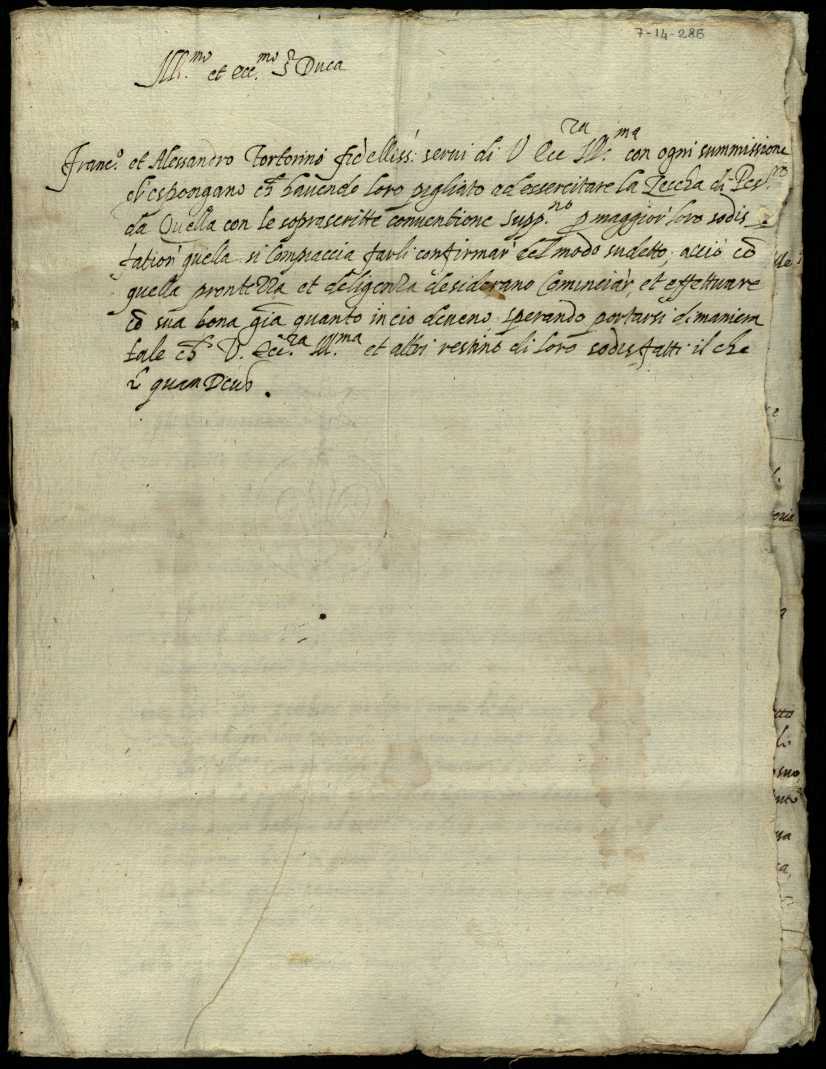 7-14-286
Ill.mo et ecc.mo Sr Duca
Franc.o et Alessandro Tortorino fidelliss: servi di V Ecc.ra Ill.ma con ogni summissione
espongano ch havendo loro pigliato ad essercitare la Zeccha di
da Quella con le soprascritte conventione Supp.no p maggior loro sodis
fation quella si Compiaccia farli confirmar nel modo sudetto, acciò cō
quella prontezza et deligenza desiderano Cominciar, et effettuare
cō sua bona gia quanto in cio deveno sperando portarsi di maniera
tale ch V. Ecc.ra Ill.ma et altri restino di loro sodisfatti il che
quam Deus